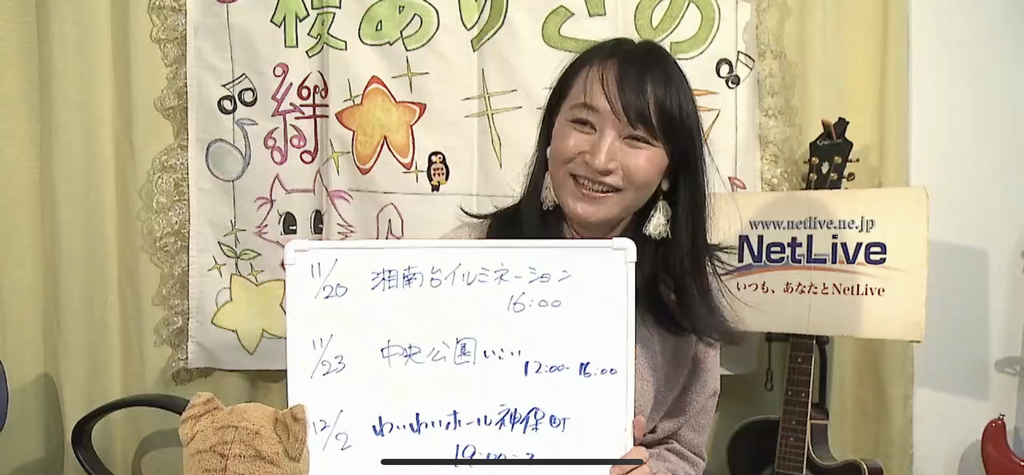 桜ありさの
絆
www.netlive.ne.jp
NetLive
いつも、あなたとNetLive
11/20 湘南台イルミネーション
16:00
11/23 中央公園いこい
12:00-16:00
12/2 わいわいホール神保町
19:00